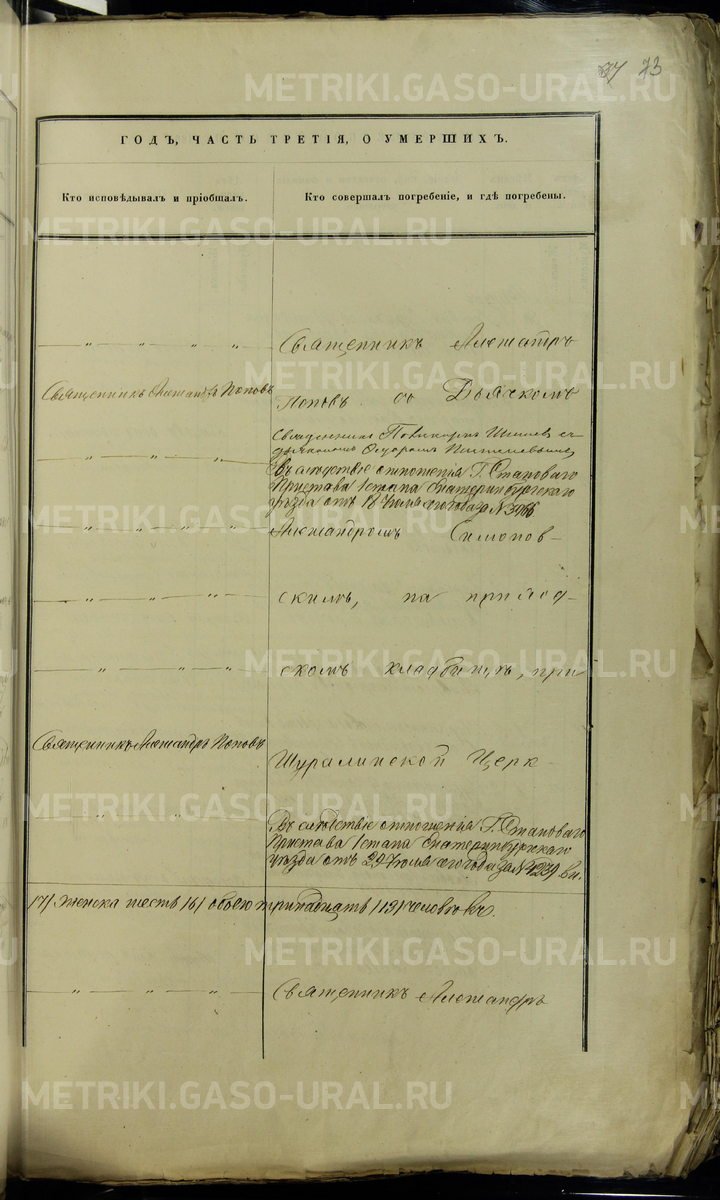 73
ГОДЪ, ЧАСТЬ ТРЕТІЯ, О УМЕРШИХЪ.
Кто исповѣдывалъ и пріобщалъ.
Кто совершалъ погребеніе, и гдѣ погребены.
Священникъ Алеѯандръ
Священникъ Алеѯандръ Поповъ
Поповъ со Дьячкомъ
Священникъ Поликарпъ
Въ слѣдствіе отношенія Г. Становаго
Пристава 1 стана Екатеринбургскаго
уѣзда отъ 18 Іюля сего года за № 3966
Алеѯандромъ Симонов-
скимъ, на приход-
скомъ кладбищѣ, при
Священникъ Алеѯандръ Поповъ
Шуралинской Церк
Въ слѣдствіе отношенія Г. Становаго
Пристава 1 стана Екатеринбургскаго
уѣзда отъ 29 Іюля сего года за №
/7/ женска шесть /6/ обоего тринадцать /13/ человѣкъ.
Священникъ Алеѯандръ
METRIKI.GASO-URAL.RU